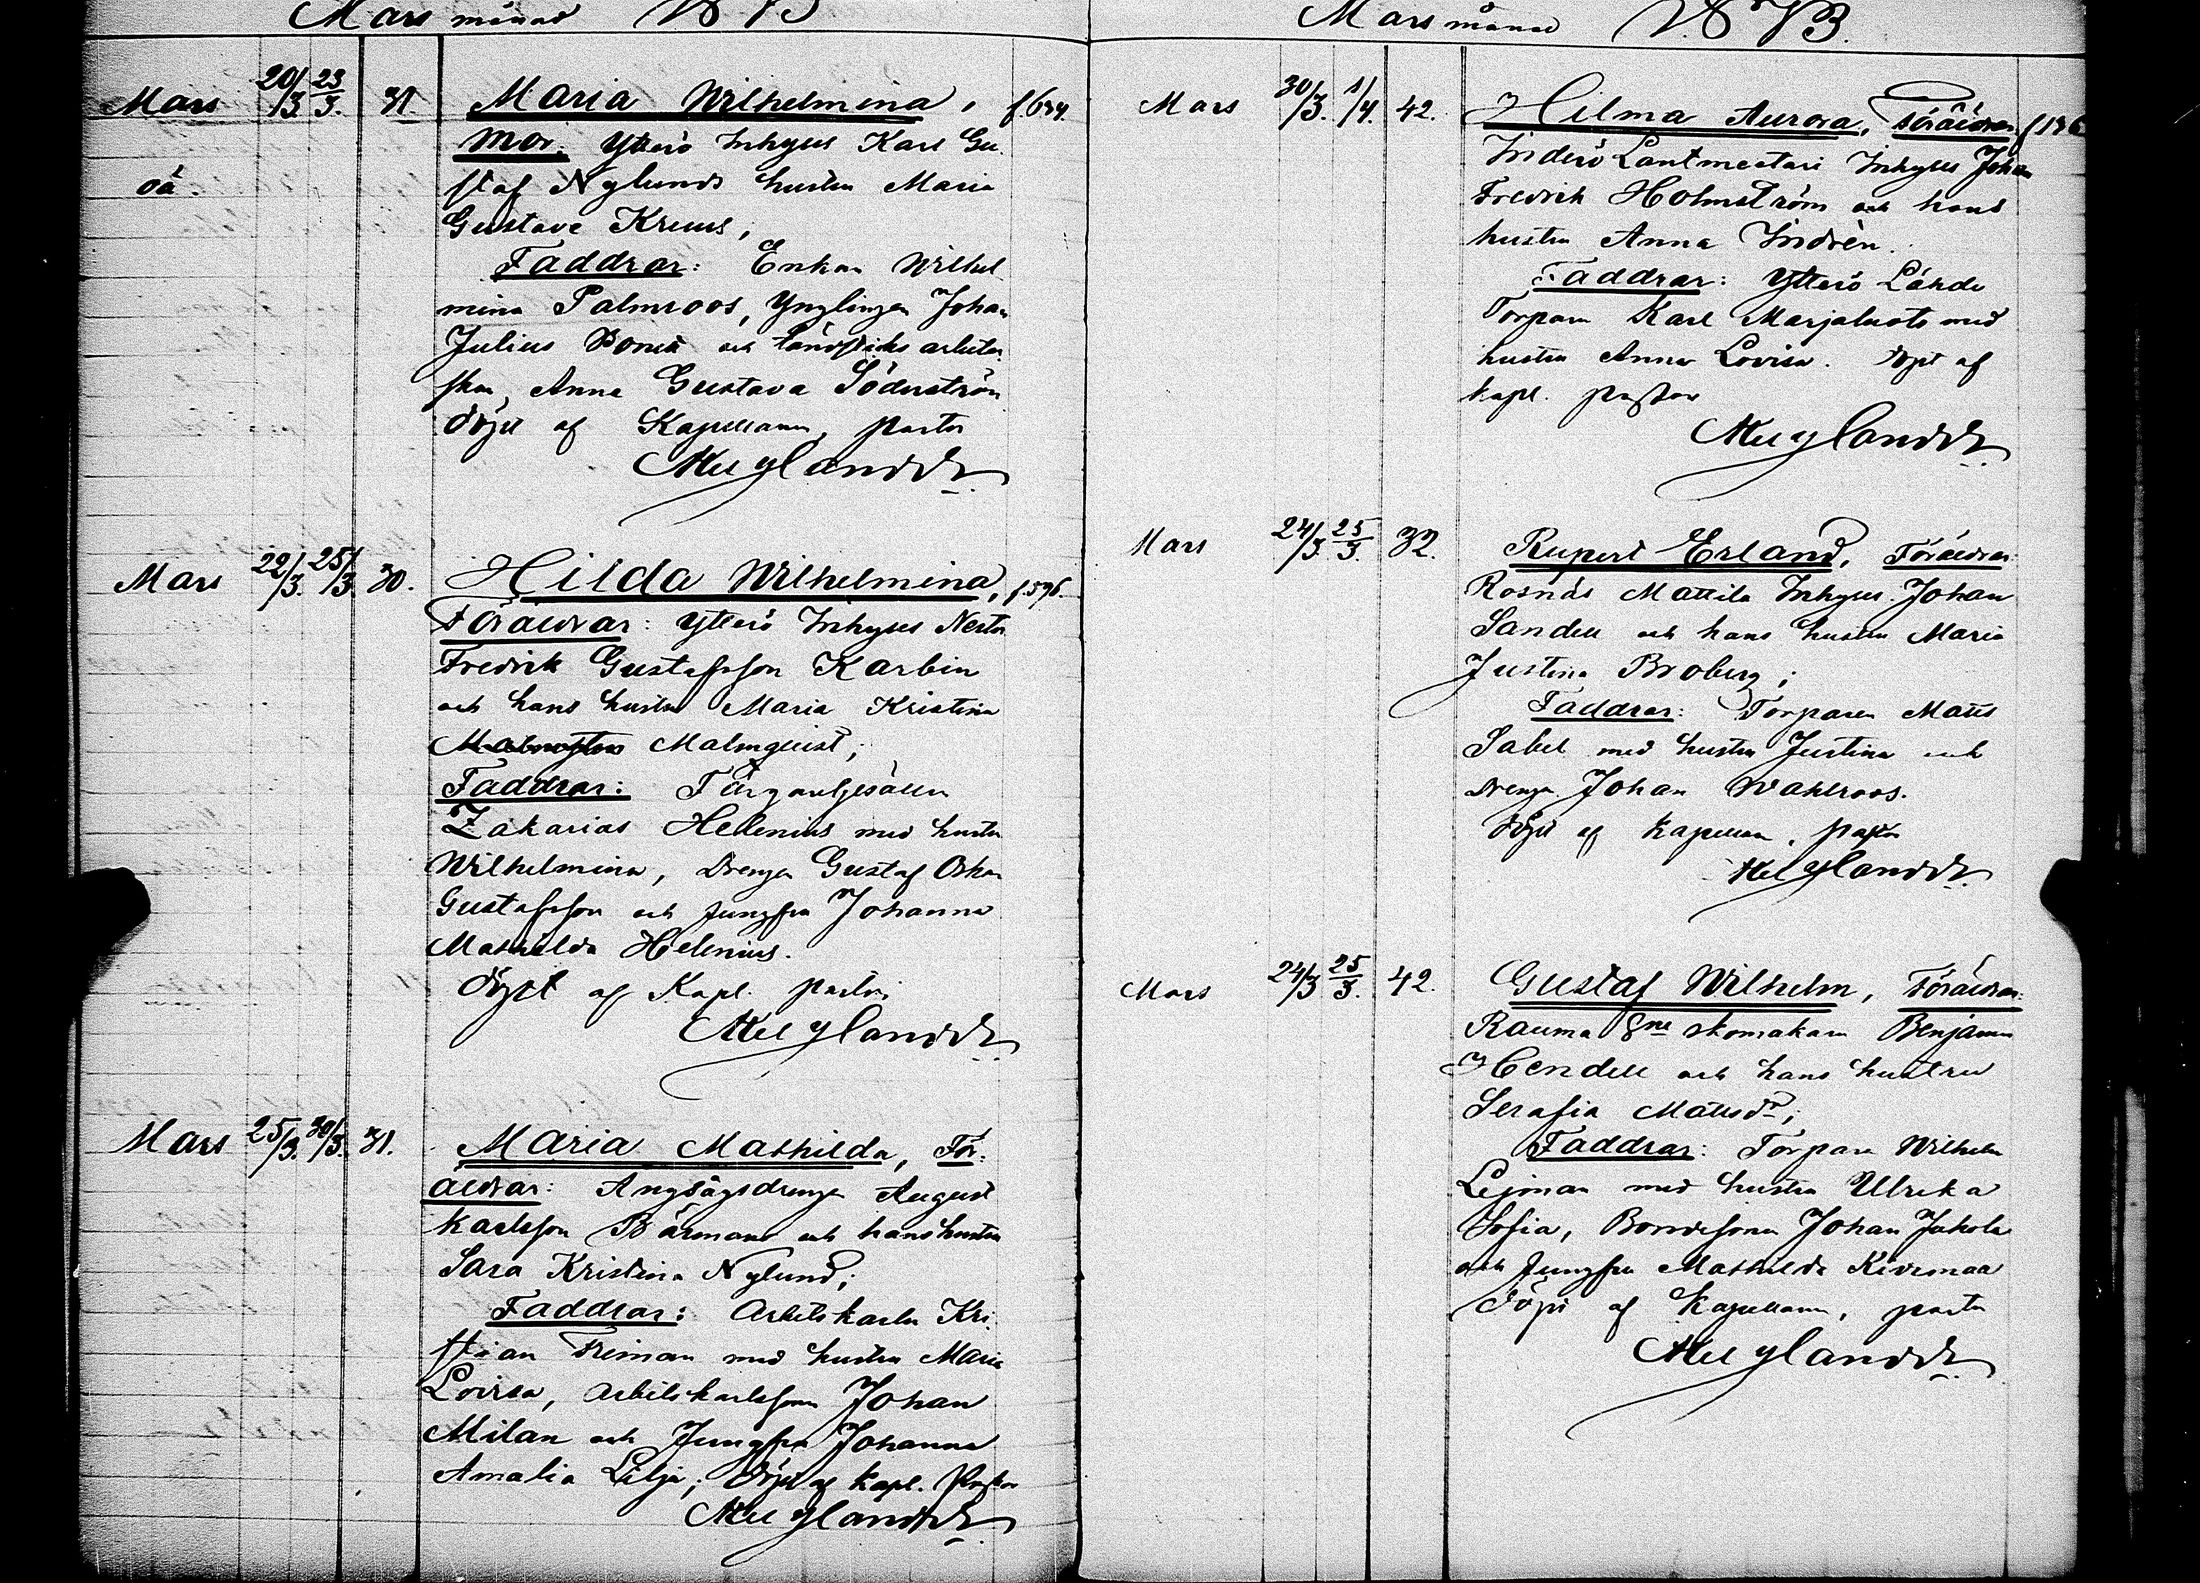 Mars månad 1873
Mars 20/3. 23/3. 31. Maria Wilhelmina, f. 634.
oä. Mor: Ytterö Inhyses Karl Gu-
staf Nylunds hustru Maria
Gustava Kruus,
Faddrar: Enkan Wilhel
mina Palmroos, Ynglingen Johan
Julius och tändsticks arbeter
skan Anna Gustava Söderström
Döpt af Kapellanen, pastor
Meylandt
Mars 22/3. 25/3. 30. Hilda Wilhelmina, f. 596.
Föräldrar: Ytterö Inhyses Nestor
Fredrik Gustafsson Karbin
och hans hustru Maria Kristina
Malmqvist;
Faddrar: Färgaregesällen
Zakarias Helenius med hustru
Wilhelmina, Drengen Gustaf Oskar
Gustafsson och Jungfru Johanna
Mathilda Helenius.
Döpt af Kapl. pastor
Meylandt
Mars 25/3. 30/3. 31. Maria Mathilda, För-
äldrar: Ångsågsdrengen August
Karlsson Bärman och hans hustru
Sara Kristina Nylund;
Faddrar: Arbetskarlen Kri-
stian Friman med hustru Maria
Lovisa, Arbetskarlssonen Johan
Milan och Jungfru Johanna
Amalia Lilja; Döpt af Kapl. Pastor
Meylandt
Mars månad 1873.
Mars 30/3. 1/4. 42. Hilma Aurora, Föräldrar f 136
Inderö Lantmeetari Inhyses Johan
Fredrik Holmström och hans
hustru Anna Indrén.
Faddrar: Ytterö Lähde
Torparen Karl Marjaluoto med
hustru Anna Lovisa. Döpt af
kapl. pastor
Meylandt
Mars 24/3. 25/3. 32. Rupert Erland, Föräldrar:
Rosnäs Mattila Inhyses Johan
Sandell och hans hustru Maria
Justina Broberg;
Faddrar: Torparen Matts
Sabel med hustru Justina och
Drengen Johan Wahlroos.
Döpt af kapellan, pastor
Meylandt
Mars 24/3 25/3. 42. Gustaf Wilhelm, Föräldrar:
Rauma 8ne skomakaren Benjamin
Hendell och hans hustru
Serafia Mattsdr;
Faddrar: Torparen Wilhelm
Lejman med hustru Ulrika
Sofia, Bondesonen Johan Jakola
och Jungfru Mathilda Kivimaa
Döpt af Kapellanen, pastor
Meylandt